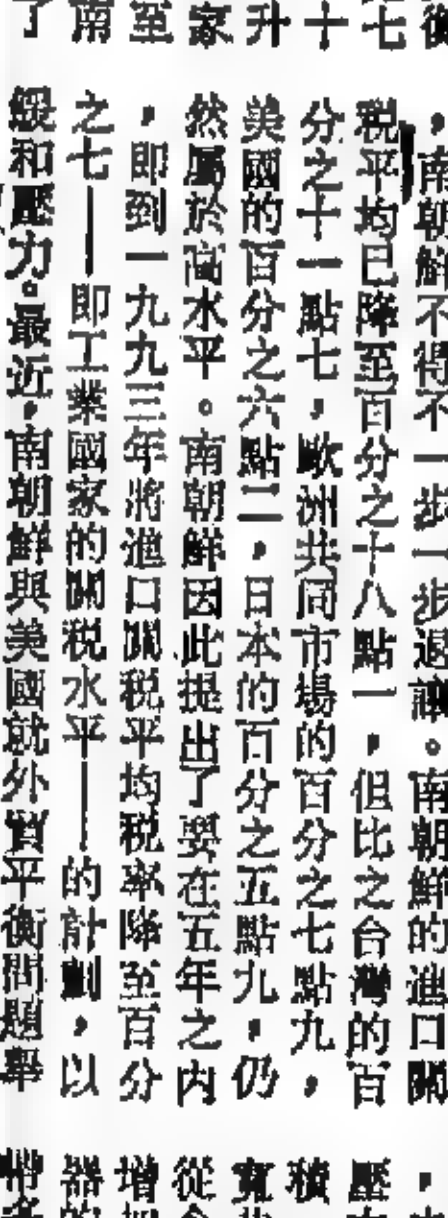 ，南朝鮮不得不一步一步退讓。南朝鮮的進口關
稅平均已降至百分之十八點一，但比之台灣的百
分之十一點七，歐洲共同市場的百分之七點九，
美國的百分之六點二，日本的百分之五點九，仍
然屬於高水平。南朝鮮因此提出了要在五年之內
，即到一九九三年將進口關稅平均稅率降至百分
之七——即工業國家的關稅水平——的計劃，以
緩和壓力。最近，南朝鮮與美國就外貿平衡問題舉